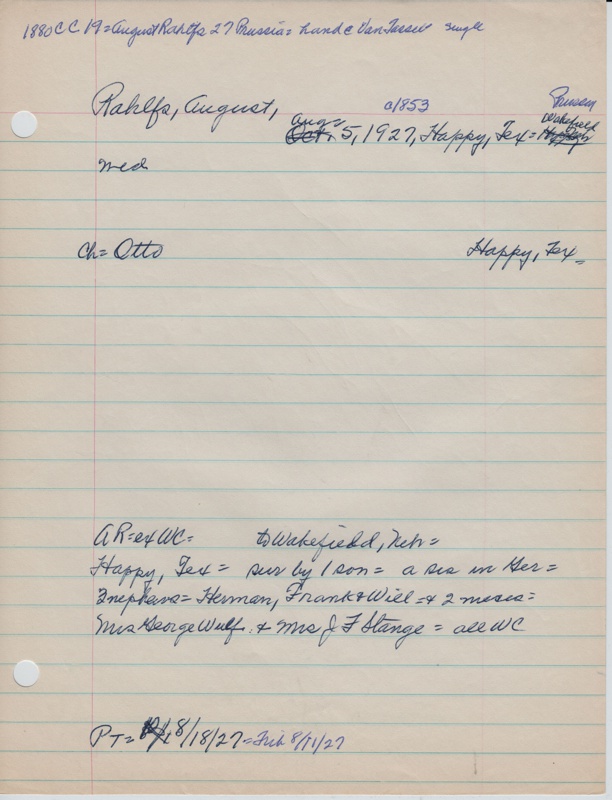 1880 CC 19 = August Rahlfs 27 Prussia = hand c Van Tassel single
Rahlfs, August, c1853 Preussen
Aug = Wakefield
Oct. 5, 1927, Happy, Tex =
med
Ch = Otto Happy, Tex =
AR = ex WC = to Wakefield, Neb =
Happy, Tex = sur by 1 son = a sis in Ger =
3 nephews = Herman, Frank & Will = & 2 nieces =
Mrs George Wulf & Mrs J F Stange = all WC
PT = 8/18/27 = Trib 8/11/27